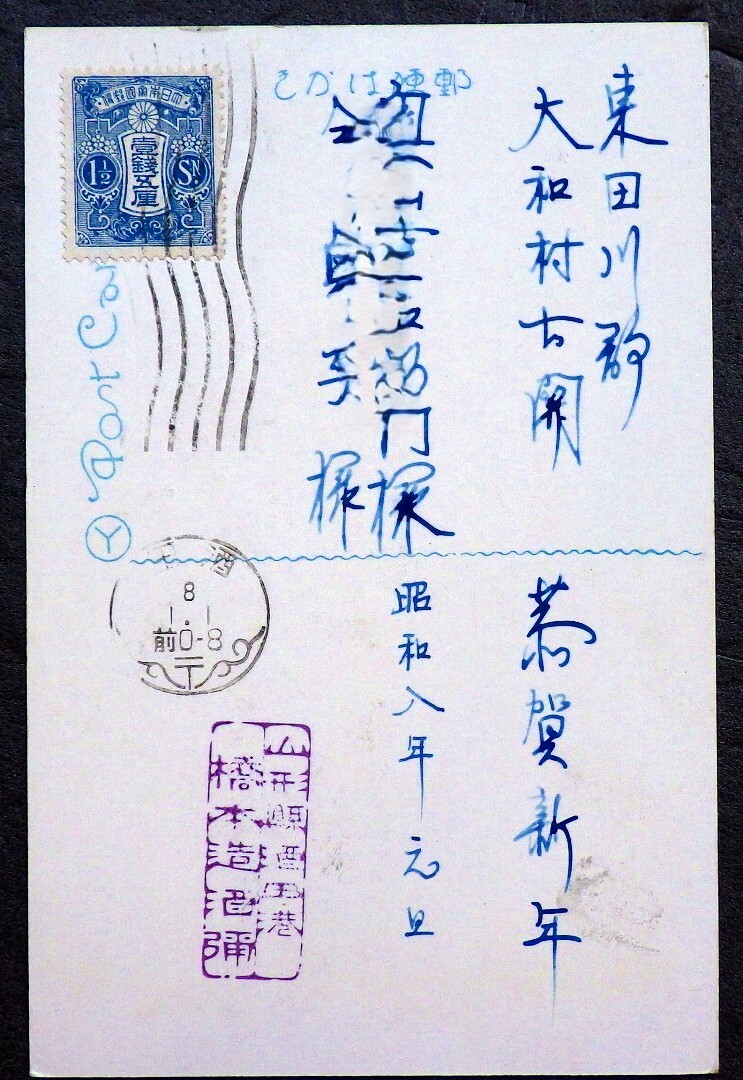 大日本帝國郵便
壹錢五厘
1½ Sn.
郵便はかき
Post Car
Y
東田川郡
大和村古関
門様
様
恭賀新年
昭和八年元旦
酒
8
1.1
前0-8
山形縣酒田港
橋本造酒彌